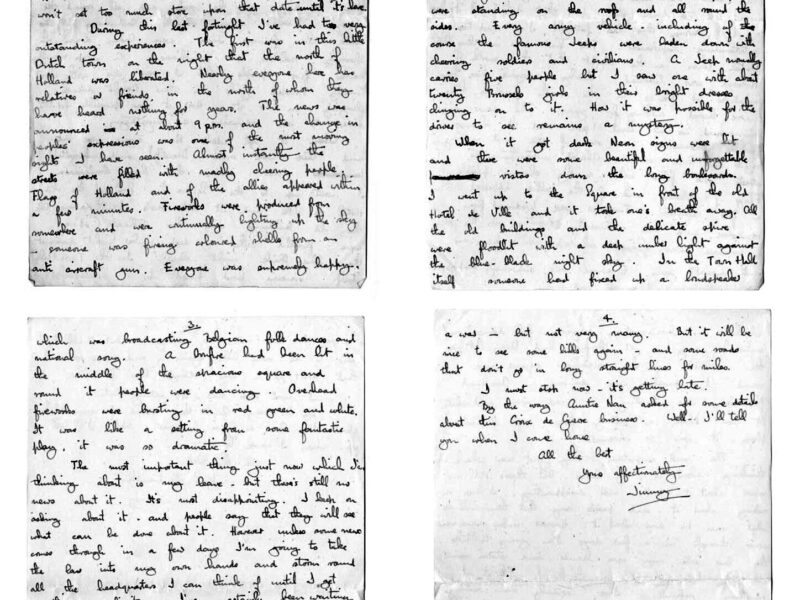 won't set too much store upon that date until it's here.
During this last fortnight I've had two very
outstanding experiences. The first was in this little
Dutch town on the night that the north of
Holland was liberated. Nearly everyone here has
relatives or friends in the north of whom they
have heard nothing for years. The news was
announced at about 9 p.m. and the change in
peoples' expressions was one of the most moving
sights I have seen. Almost instantly the
streets were filled with madly cheering people.
Flags of Holland and of the allies appeared within
a few minutes. Fireworks were produced from
somewhere and were continually lighting up the sky
- someone was firing coloured shells from an
anti aircraft gun. Everyone was supremely happy.
were standing on the roofs and all round the
sides. Every army vehicle - including of
course the famous Jeeps were laden down with
cheering soldiers and civilians. A Jeep normally
carries five people but I saw one with about
twenty Brussels girls in their bright dresses
clinging on to it. How it was possible for the
driver to see remains a mystery.
When it got dark Neon signs were lit
and there were some beautiful and unforgettable
vistas down the long boulevards.
I went up to the Square in front of the old
Hotel de Ville and it took one's breath away. All
the old buildings and the delicate spire
were floodlit with a deep amber light against
the blue-black night sky. In the Town Hall
itself someone had fixed up a loudspeaker
3.
which was broadcasting Belgian folk dances and
national song. A bonfire had been lit in
the middle of the spacious square and
round it people were dancing. Overhead
fireworks were bursting in red green and white.
It was like a setting from some fantastic
play, it was so dramatic.
The most important thing just now which I'm
thinking about is my leave - but there's still no
news about it. It's most disappointing. I keep on
asking about it - and people say that they will see
what can be done about it. However unless some news
comes through in a few days I'm going to take
the law into my own hands and storm round
all the headquarters I can think of until I get
I've certainly been waiting
4.
a was - but not very many. But it will be
nice to see some hills again - and some roads
that don't go in long straight lines for miles.
I must stop now - it's getting late.
By the way Auntie Nan asked for some details
about this Croix de Guerre business. Well - I'll tell
you when I come home
All the best
Yours affectionately
Jimmy